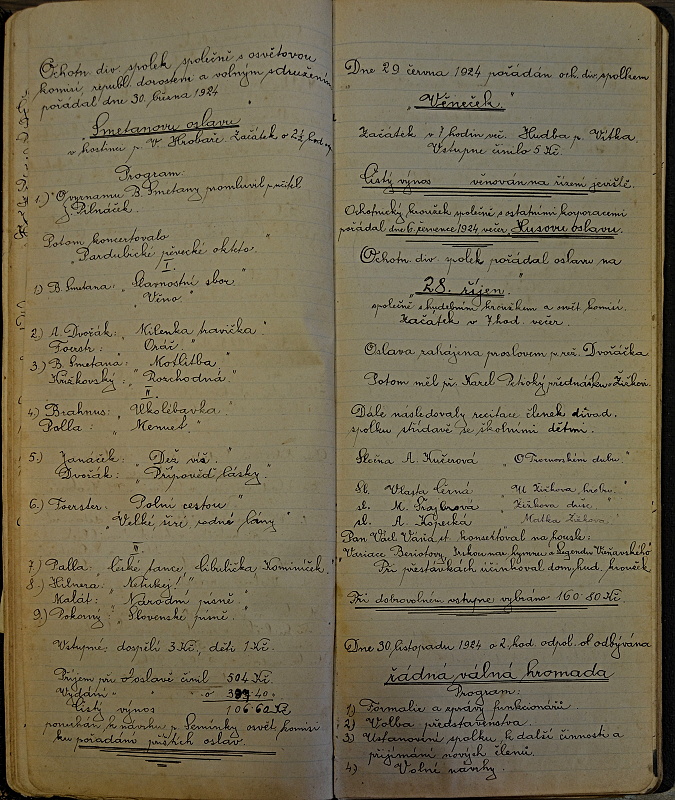 Ochotn. div. spolek společně s osvětovou
komisí, republ. dorostem a volným sdružením
pořádal dne 30. března 1924
"Smetanovu oslavu"
v hostinci p. V. Hrobaře. Začátek o 2½ hod. odp.
Program:
1.) O významu B. Smetany promluvil p. učitel
J. Pilnáček.
Potom koncertovalo
"Pardubické pěvecké okteto."
I.
1) B. Smetana: "Slavnostní sbor"
"Věno"
2.) A. Dvořák: "Milenka travička"
Foerstr: "Oráč"
3.) B. Smetana: "Motlitba"
Křížkovský: "Rozchodná"
II.
4.) Brahnus: "Ukolébavka"
Palla: "Menuet"
5.) Janáček: "Dež viš"
Dvořák: "Přípověď lásky"
6.) Foerster: "Polní cestou"
"Velké, širé, rodné lány"
II
7.) Palla: české tance, Cibulička, Kominíček.
8.) Hilnera: "Netukej!"
Malát: "Národní písně"
9.) Pokorný: "Slovenské písně"
Vstupné: dospělí 3 Kč, děti 1 Kč.
Příjem při oslavě činil 504 Kč.
Vydání " " o 40
Čistý výnos 106·60 Kč,
ponechán k návrhu p. Semínky osvět. komisi
ku pořádání příštích oslav.
Dne 29 června 1924 pořádán och. div. spolkem
"Věneček."
Začátek v 7 hodin več. Hudba p. Vítka.
Vstupné činilo 5 Kč.
Čistý výnos věnován na řízení jeviště.
Ochotnický kroužek společně s ostatními korporacemi
pořádal dne 6. července 1924 večer "Husovu oslavu".
Ochotn. div. spolek pořádal oslavu na
"28. říjen."
společně s hudebním kroužkem a osvět. komisí.
Začátek v 7. hod. večer.
Oslava zahájena proslovem p. rež. Dvořáčka
Potom měl př. Karel přednášku o Žižkovi.
Dále následovaly recitace členek divad.
spolku střídavě se školními dětmi.
Slečna A. Kučerová "O Trocnovském dubu."
Sl. Vlasta Černá "U Žižkova hrobu."
sl. M. "Žižkova duše"
sl. A. Kopecká "Matka Žižkova"
Pan Václ. Váňa st. koncertoval na housle:
Variace Beriotovy, Legendu Vieňavského
Při přestávkách účinkoval dom. hud. kroužek
Při dobrovolném vstupné vybráno 160·80 Kč.
Dne 30. listopadu 1924 o 2. hod. odpol. odbývána
řádná valná hromada
Program:
1) Formalie a zprávy funkcionářů.
2) Volba představenstva.
3) Ustanovení spolku k další činnosti a
přijímání nových členů.
4) Volné návrhy.